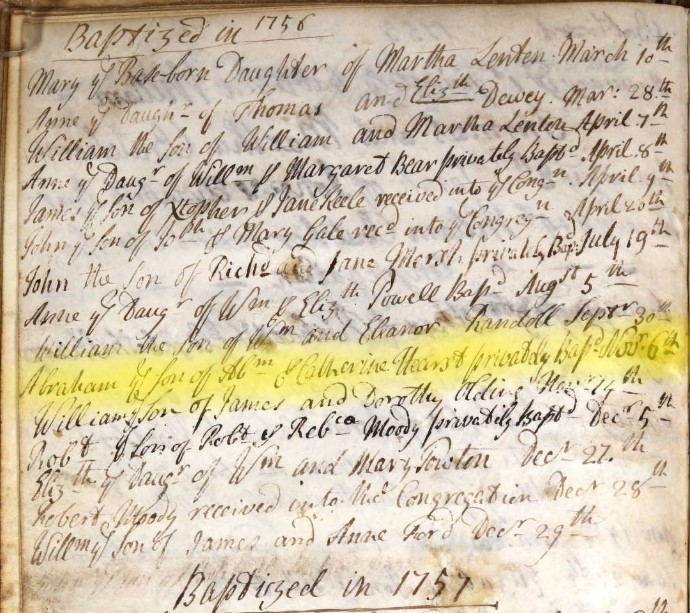 Baptized in 1756
Mary ye Base-born Daughter of Martha Lenten March 10th
Anne ye Daughr of Thomas and Elizth Dewey. Mar: 28.th
William the Son of William and Martha Lenton April 7th
Anne ye Daugr of Willm & Margaret Bear privately Baptd April 8th
James ye Son of Xtopher & Jane Keele received into ye Congn April 9th
John ye Son of Joth & Mary Gale recd into ye Congregn April 20th
John the Son of Richd and Jane privately Bap: July 19th
Anne ye Daugr of Wm & Elizth Powell Bapd Augst 5th
William the Son of Wm and Eleanor Randoll Septr 30th
Abraham ye Son of Abm & Catherine Hearst privately Bapd Novr 6th
William ye Son of James and Dorothy 14th
Robt ye Son of Robt & Rebca Moody privately Baptd Decr 5th
Elizth ye Daugr of Wm and Mary Towton Decr 27.th
Robert Moody received into the Congregation Decr 28th
Willm ye Son of James and Anne Ford Decr 29th
Baptized in 1757